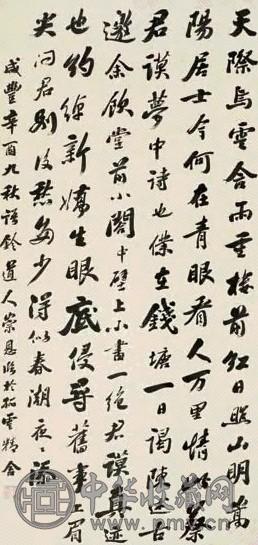 天際烏雲含雨重樓前紅日照山明嵩
陽居士今何在青眼看人萬里情此蔡
君謨夢中詩也僕在錢塘一日謁陳述古
邀余飲堂前小閣中壁上小書一絕君謨真迹
也約綽新嬌生眼底侵尋舊事上眉
尖問君別後愁多少得似春潮夜夜添
咸豐辛酉九秋語鈴道人崇恩臨於
雲精舍
中华收藏网
www.pmcn